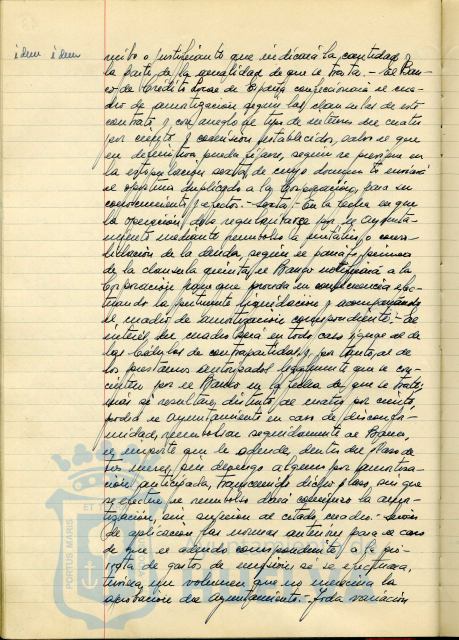 idem idem
recibo o justificante que indicará la cantidad y
la parte de la anualidad de que se trata.- El Ban-
co de Crédito Local de España confeccionará el cua-
dro de amortización según las cláusulas de este
contrato y con arreglo al tipo de interés del cuatro
por ciento y comisión establecidos, salvo el que
en definitiva pueda fijarse, según se previene en
la estipulación sexta, de cuyo documento enviará
el oportuno duplicado a la Corporación, para su
conocimiento y efectos.- Sexta.- En la fecha en que
la operación deba regularizarse por el Ayunta-
miento mediante reembolso o conso-
lidación de la deuda, según el párrafo primero
de la cláusula quinta, el Banco notificará a la
Corporación para que proceda en consecuencia efec-
tuando la pertinente liquidación y acompañando
el cuadro de amortización correspondiente.- El
interés del cuadro será en todo caso igual al de
las Cédulas de contrapartida y, por tanto, al de
los préstamos autorizados legalmente que se con-
cierten por el Banco en la fecha de que se trate;
mas si resultare distinto del cuatro por ciento,
podrá el Ayuntamiento en caso de disconfor-
midad, reembolsar seguidamente al Banco,
el importe que le adeude, dentro del plazo de
tres meses, sin devengo alguno por amortiza-
ción anticipada, transcurrido dicho plazo, sin que
se efectúe el reembolso dará comienzo la amor-
tización, con sujeción al citado cuadro.-
de aplicación las normas anteriores para el caso
de que el adeudo correspondiente a la pro-
rrata de gastos de emisión así se efectuara,
tuviera, un volumen que no mereciera la
aprobación del Ayuntamiento.- Toda variación
PORTUS MARIS ET